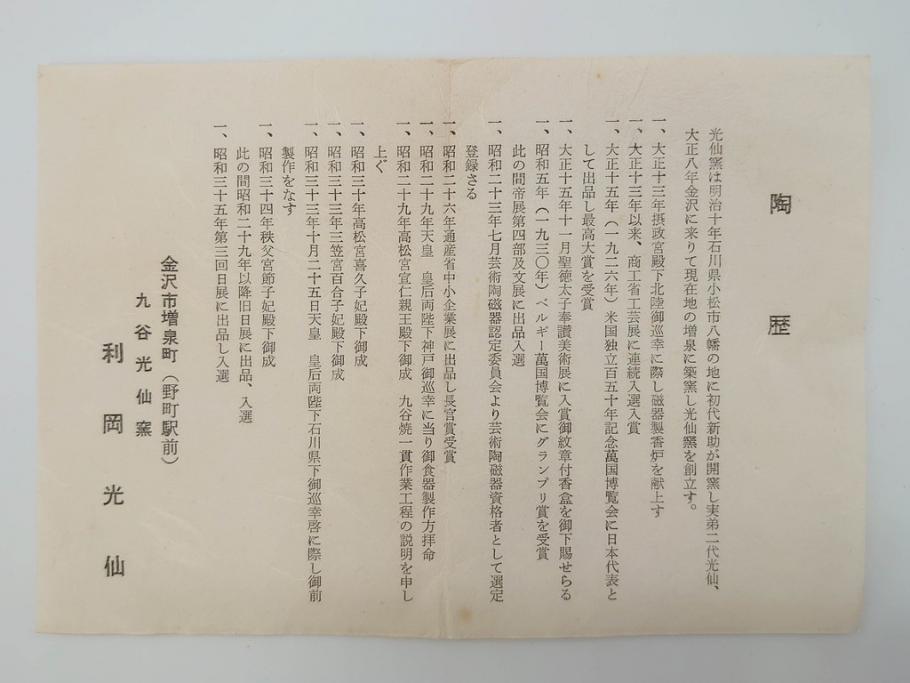 陶歴
光仙窯は明治十年石川県小松市八幡の地に初代新助が開窯し実弟二代光仙、
大正八年金沢に来りて現在地の増泉に築窯し光仙窯を創立す。
一、大正十三年摂政宮殿下北陸御巡幸に際し磁器製香炉を献上す
一、大正十三年以来、商工省工芸展に連続入選入賞
一、大正十五年(一九二六年)米国独立百五十年記念萬国博覧会に日本代表と
して出品し最高大賞を受賞
一、大正十五年十一月聖徳太子奉讃美術展に入賞御紋章付香盒を御下賜せらる
一、昭和五年(一九三〇年)ベルギー萬国博覧会にグランプリ賞を受賞
此の間帝展第四部及文展に出品入選
一、昭和二十三年七月芸術陶磁器認定委員会より芸術陶磁器資格者として選定
登録さる
一、昭和二十六年通産省中小企業展に出品し長官賞受賞
一、昭和二十九年天皇 皇后両陛下神戸御巡幸に当り御食器製作方拝命
一、昭和二十九年高松宮宣仁親王殿下御成 九谷焼一貫作業工程の説明を申し
上ぐ
一、昭和三十年高松宮喜久子妃殿下御成
一、昭和三十三年三笠宮百合子妃殿下御成
一、昭和三十三年十月二十五日天皇 皇后両陛下石川県下御巡幸啓に際し御前
製作をなす
一、昭和三十四年秩父宮節子妃殿下御成
此の間昭和二十九年以降旧日展に出品、入選
一、昭和三十五年第三回日展に出品し入選
金沢市増泉町(野町駅前)
九谷光仙窯
利岡光仙